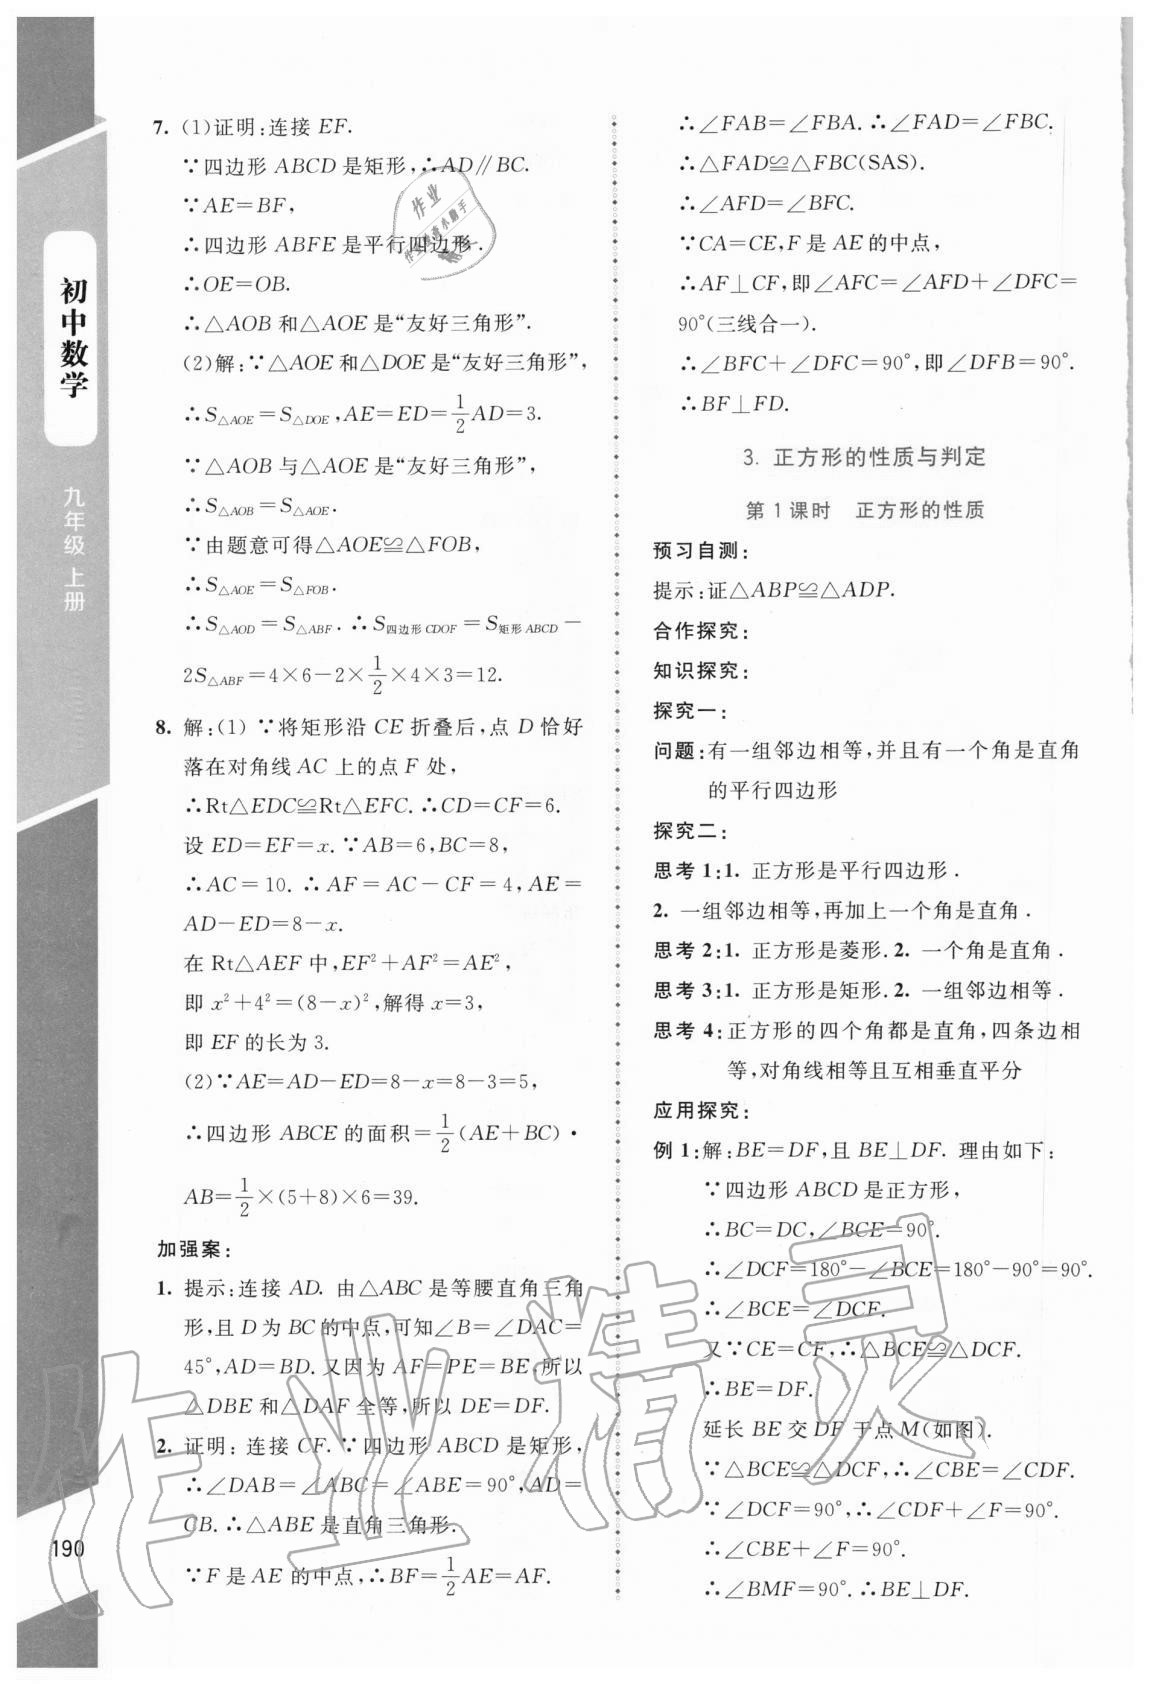 初中数学
九年级 上册
190
7. (1)证明:连接 EF.
∵四边形 ABCD 是矩形,∴AD∥BC.
∵AE=BF,
∴四边形 ABFE 是平行四边形.
∴OE=OB.
∴△AOB 和△AOE 是“友好三角形”.
(2)解:∵△AOE 和△DOE 是“友好三角形”,
∴S△AOE=S△DOE,AE=ED=1/2AD=3.
∵△AOB 与△AOE 是“友好三角形”,
∴S△AOB=S△AOE.
∵由题意可得△AOE≌△FOB,
∴S△AOE=S△FOB.
∴S△AOD=S△ABF. ∴S四边形CDOF=S矩形ABCD-
2S△ABF=4×6-2×1/2×4×3=12.
8. 解:(1) ∵将矩形沿 CE 折叠后,点 D 恰好
落在对角线 AC 上的点 F 处,
∴Rt△EDC≌Rt△EFC. ∴CD=CF=6.
设 ED=EF=x. ∵AB=6,BC=8,
∴AC=10. ∴AF=AC-CF=4,AE=
AD-ED=8-x.
在 Rt△AEF 中,EF²+AF²=AE²,
即 x²+4²=(8-x)²,解得 x=3,
即 EF 的长为 3.
(2)∵AE=AD-ED=8-x=8-3=5,
∴四边形 ABCE 的面积=1/2(AE+BC)·
AB=1/2×(5+8)×6=39.
加强案:
1. 提示:连接 AD. 由△ABC 是等腰直角三角
形,且 D 为 BC 的中点,可知∠B=∠DAC=
45°,AD=BD. 又因为 AF=PE=BE,所以
△DBE 和△DAF 全等,所以 DE=DF.
2. 证明: 连接 CF. ∵四边形 ABCD 是矩形,
∴∠DAB=∠ABC=∠ABE=90°,AD=
CB. ∴△ABE 是直角三角形.
∵F 是 AE 的中点,∴BF=1/2AE=AF.
∴∠FAB=∠FBA. ∴∠FAD=∠FBC.
∴△FAD≌△FBC(SAS).
∴∠AFD=∠BFC.
∵CA=CE,F 是 AE 的中点,
∴AF⊥CF,即∠AFC=∠AFD+∠DFC=
90°(三线合一).
∴∠BFC+∠DFC=90°,即∠DFB=90°.
∴BF⊥FD.
3. 正方形的性质与判定
第 1 课时 正方形的性质
预习自测:
提示:证△ABP≌△ADP.
合作探究:
知识探究:
探究一:
问题:有一组邻边相等,并且有一个角是直角
的平行四边形
探究二:
思考 1:1. 正方形是平行四边形.
2. 一组邻边相等,再加上一个角是直角.
思考 2:1. 正方形是菱形. 2. 一个角是直角.
思考 3:1. 正方形是矩形. 2. 一组邻边相等.
思考 4:正方形的四个角都是直角,四条边相
等,对角线相等且互相垂直平分
应用探究:
例 1:解:BE=DF,且 BE⊥DF. 理由如下:
∵四边形 ABCD 是正方形,
∴BC=DC,∠BCE=90°.
∴∠DCF=180°-∠BCE=180°-90°=90°.
∴∠BCE=∠DCF.
又∵CE=CF,∴△BCE≌△DCF.
∴BE=DF.
延长 BE 交 DF 于点 M(如图).
∵△BCE≌△DCF,∴∠CBE=∠CDF.
∵∠DCF=90°,∴∠CDF+∠F=90°.
∴∠CBE+∠F=90°.
∴∠BMF=90°. ∴BE⊥DF.
作业精灵
作业